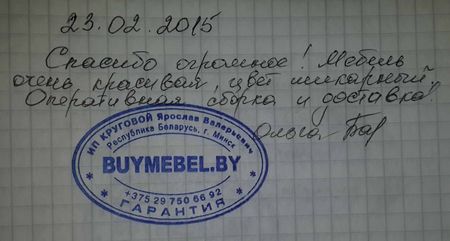 23.02.2015
Спасибо огромное! Мебель
очень красивая, цвет шикарный.
Оперативная сборка и доставка!
Ольга
ИП КРУГОВОЙ Ярослав Валерьевич
Республика Беларусь, г. Минск
BUYMEBEL.BY
+375 29 750 66 92
ГАРАНТИЯ